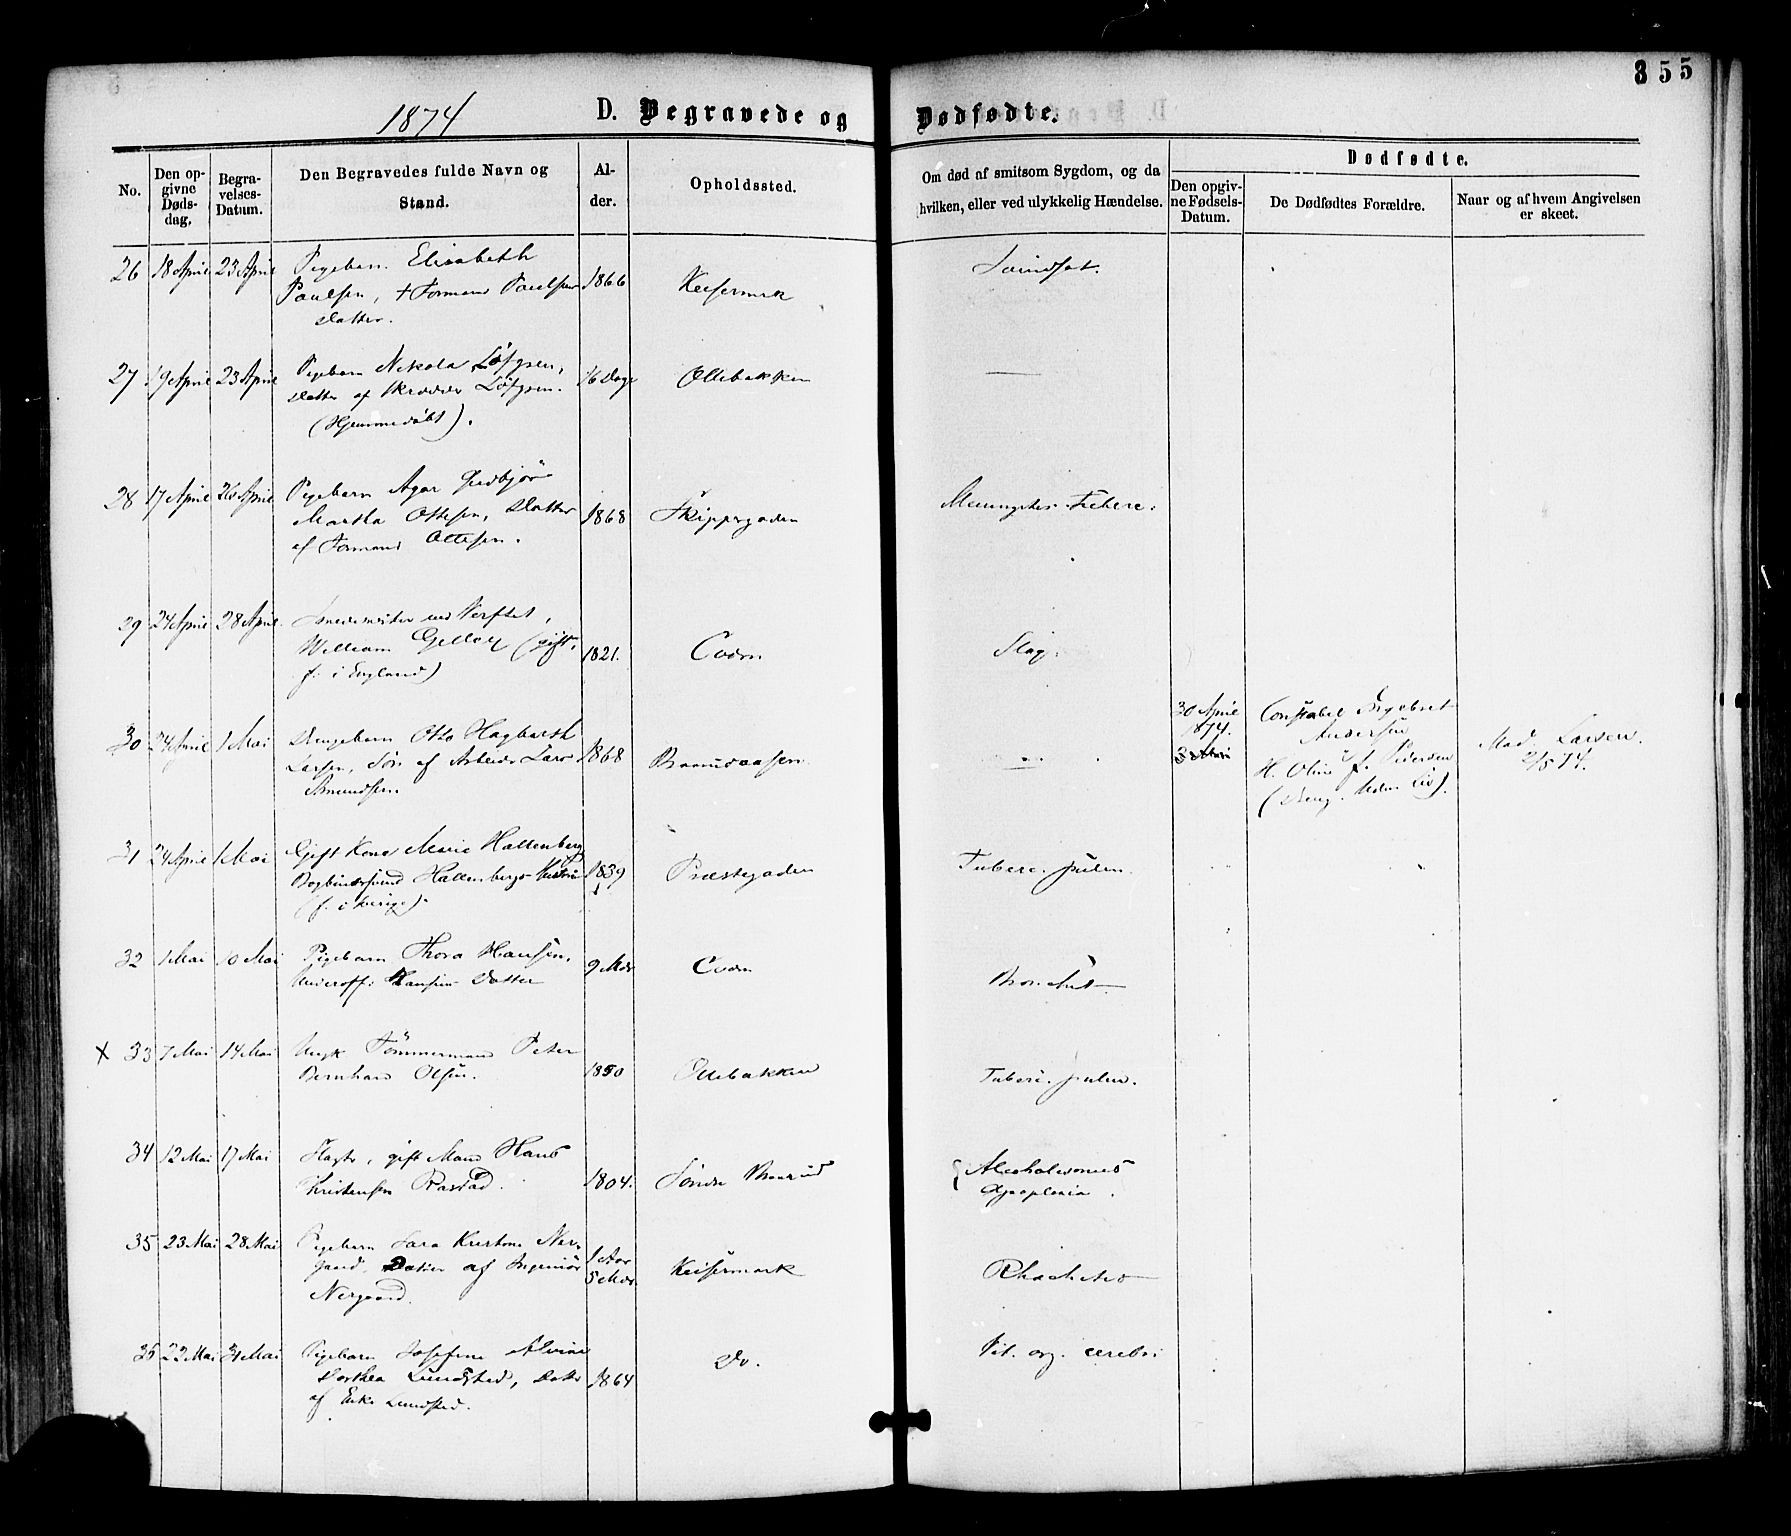 355
1874 D. Begravede og Dødfødte.
No. Den opgivne Dødsdag. Begravelses-Datum. Den Begravedes fulde Navn og Stand. Alder. Opholdssted. Om død af smitsom Sygdom, og da hvilken, eller ved ulykkelig Hændelse. Dødfødte.
Den opgivne Fødsels-Datum. De Dødfødtes Forældre. Naar og af hvem Angivelsen er skeet.
26 18 April 23 April Pigebarn Elisabeth
Paulsen, + Formand Paulsens 1866 Keisermrk
Datter.
27 19 April 23 April Pigebarn Nikola Löfgren, 16 Dage Ollebakken
Datter af Skrædder Löfgren.
(Hjemmedöbt).
28 17 April 26 April Pigebarn Agar
Martha Ottesen, Datter 1868 Skippergaden
af Formand Ottesen.
29 24 April 28 April Smedemester ved Verftet,
William (gift, 1821. Slag.
f. i England)
30 24 April 1 Mai Drengebarn Otto Hagbarth
Larsen, Sön af Arbeider Lars 1868
Amundsen.
30 April 1874. Constabel Ingebret
Andersen
H. Oline f. Pedersen
(Dreng. Uden Liv).
Mad. Larsen
2/5 74.
31 24 April 1 Mai Gift Kone Marie Hallenberg
Bogbindersvend Hallenbergs Hustru 1839 Præstegaden Tuberc. pulm.
(f. i Sverige).
32 1 Mai 10 Mai Pigebarn Thora Hansen,
Underoff: Hansens Datter 9 Mdr Bronchit
X 33 7 Mai 14 Mai Ungk Tömmermand Peter
Bernhard Olsen. 1850 Ollebakken Tuberc. pulm.
34 12 Mai 17 Mai gift Mand Hans
Kristensen 1804. Söndre Alcoholismus
Apoplexia.
35 23 Mai 28 Mai Pigebarn Sara Kristine Ner-
gaard, Datter af Ingeniör 1 Aar 5 Mdr Keisermark Rhachitis
Nergaard.
35 22 Mai 31 Mai Pigebarn Josefine Alvine
Dorthea Lundsted, Datter 1864 Do. Vit. org. cerebri
af Enke Lundsted.